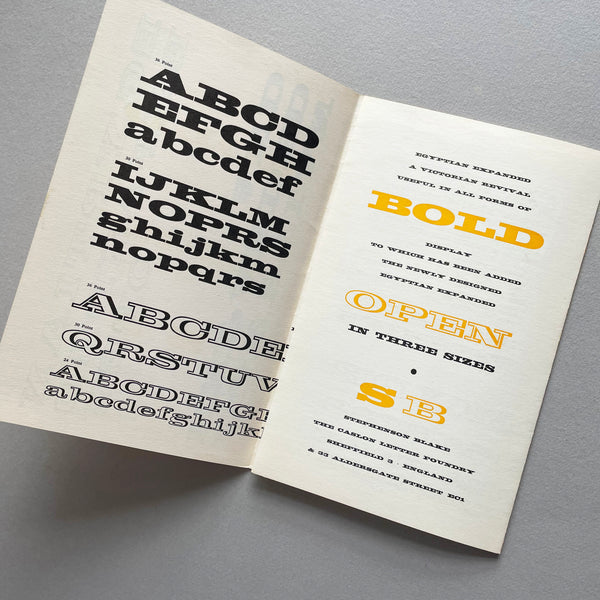 36 Point
ABCD
EFGH
abcdef
30 Point
IJKLM
NOPRS
ghijkm
nopqrs
36 Point
ABCDE
30 Point
QRSTUV
24 Point
ABCDEFGH
abcdefghijk
EGYPTIAN EXPANDED
A VICTORIAN REVIVAL
USEFUL IN ALL FORMS OF
BOLD
DISPLAY
TO WHICH HAS BEEN ADDED
THE NEWLY DESIGNED
EGYPTIAN EXPANDED
OPEN
IN THREE SIZES
S B
STEPHENSON BLAKE
THE CASLON LETTER FOUNDRY
SHEFFIELD 3 ENGLAND
& 33 ALDERSGATE STREET EC1